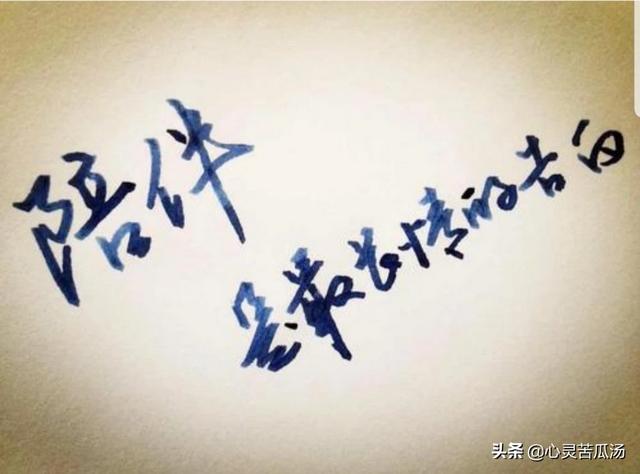 陪伴
是最长情的告白
头条 @心灵苦瓜汤